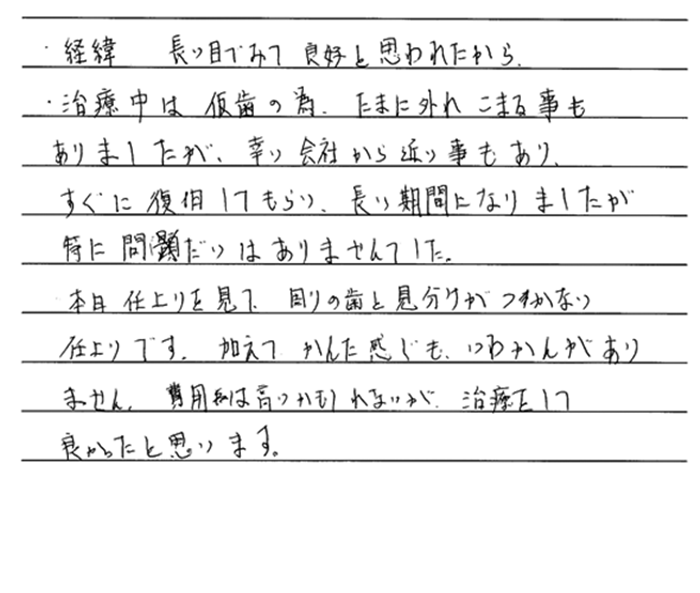 ・経緯　長い目でみて良好と思われたから.
・治療中は仮歯の為. たまに外れ こまる事も
ありましたが、幸い会社から近い事もあり、
すぐに復旧してもらい、長い期間になりましたが
特に問題だいはありませんでした。
本日 仕上りを見て 周りの歯と見分けがつかない
仕上りです. 加えて かんだ感じも、いわかんがあり
ません. 費用は高いかもしれないが、治療をして
良かったと思います。